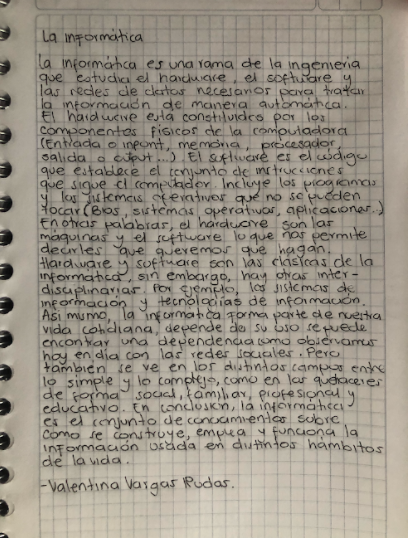 La informática
La informática es una rama de la ingenieria
que estudia el hardware, el software y
las redes de datos necesarios para tratar
la información de manera automática.
El hardware esta constituidos por los
componentes físicos de la computadora
(Entrada o input, memoria, procesador,
salida o output...) El software es el código
que establece el conjunto de instrucciones
que sigue el computador. Incluye los programas
y los sistemas operativos que no se pueden
tocar (Bios, sistemas operativos, aplicaciones..)
En otras palabras, el hardware son las
maquinas y el software lo que nos permite
decirles que queremos que hagan.
Hardware y software son las clasicas de la
informatica, sin embargo, hay otras inter-
disciplinarias. Por ejemplo, los sistemas de
información y tecnologías de información.
Asi mismo, la informatica forma parte de nuestra
vida cotidiana, depende de su uso se puede
encontrar una dependencia como observamos
hoy en dia con las redes sociales. Pero
tambien se ve en los distintos campos entre
lo simple y lo complejo, como en las quehaceres
de forma social, familiar, profesional y
educativo. En conclusion, la informatica
es el conjunto de conocimientos sobre
como se construye, emplea y funciona la
información usada en distintos hambitos
de la vida.
-Valentina Vargas Rudas.